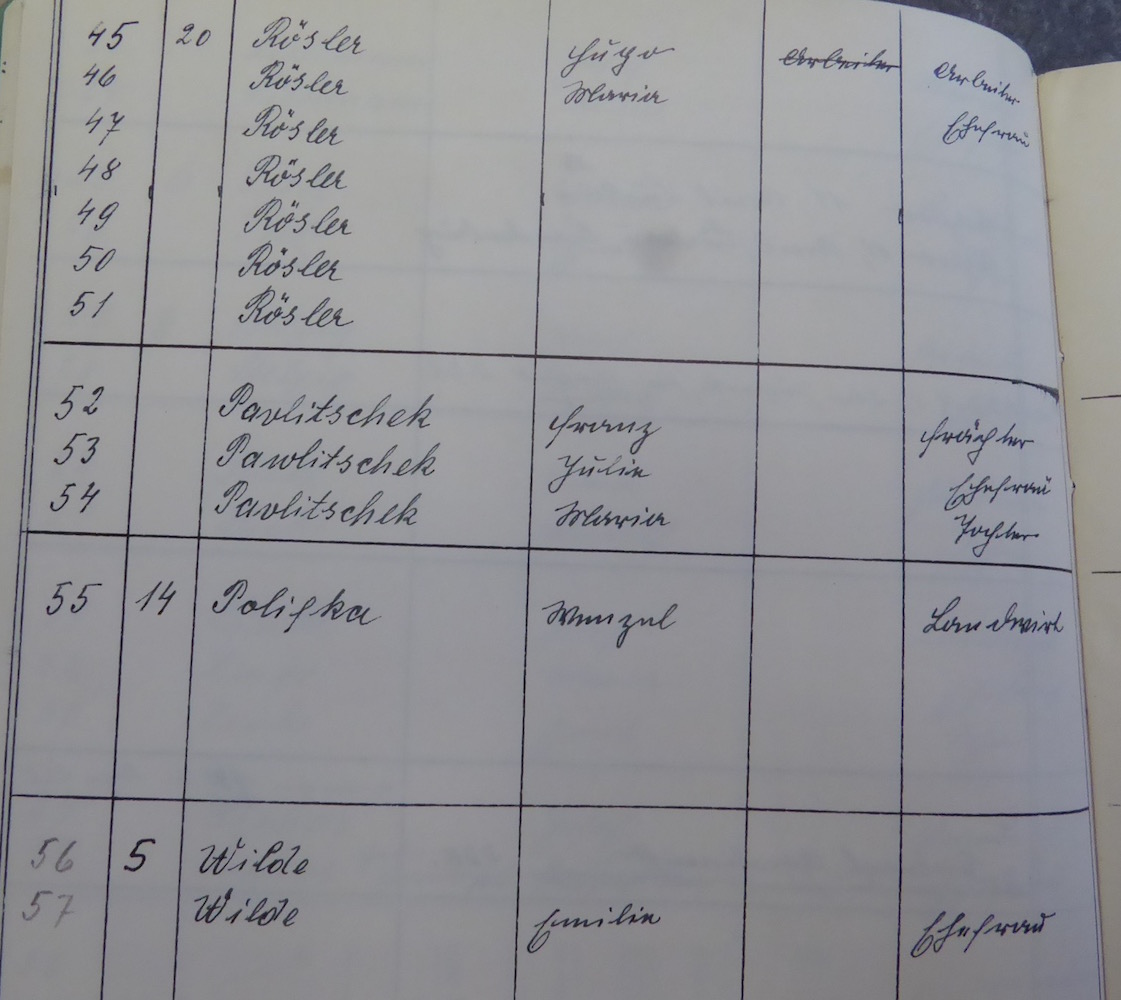 45 20 Rösler Hugo Arbeiter Arbeiter
46 Rösler Maria Ehefrau
47 Rösler
48 Rösler
49 Rösler
50 Rösler
51 Rösler
52 Pavlitschek Franz Frächter
53 Pawlitschek Julie Ehefrau
54 Pavlitschek Maria Tochter
55 14 Polifka Wenzel Landwirt
56 5 Wilde
57 Wilde Emilie Ehefrau